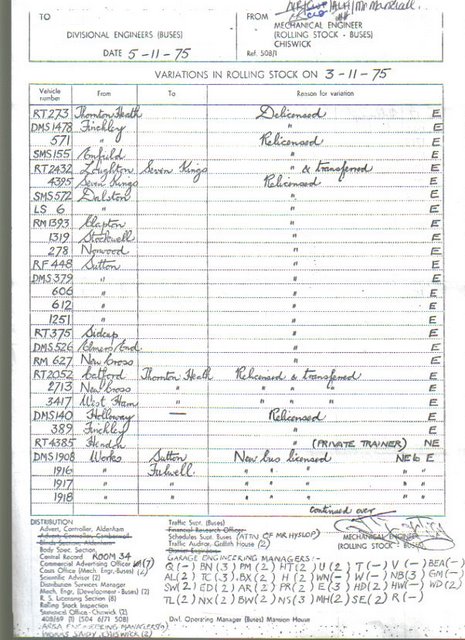 TO
FROM
MECHANICAL ENGINEER
(ROLLING STOCK - BUSES)
CHISWICK
DIVISIONAL ENGINEERS (BUSES)
DATE 5-11-75
Ref. 508/1
VARIATIONS IN ROLLING STOCK ON 3-11-75
Vehicle number From To Reason for variation
RT273 Thornton Heath Delicensed E
DMS1478 Finchley " E
571 " Relicensed E
SMS155 Enfield " E
RT2432 Loughton Seven Kings " & transferred E
4395 Seven Kings Relicensed E
SMS572 Dalston " E
LS 6 " " E
RM1393 Clapton " E
1319 Stockwell " E
278 Norwood " E
RF448 Sutton " E
DMS379 " " E
606 " " E
612 " " E
1251 " " E
RT375 Sidcup " E
DMS526 Elmers End " E
RM627 New Cross " E
RT2052 Catford Thornton Heath Relicensed & transferred E
2713 New Cross " " " " E
3417 West Ham " " " " E
DMS140 Holloway — Relicensed E
389 Finchley " E
RT4385 Hendon " (PRIVATE TRAINER) NE
DMS1908 Works Sutton New bus licensed NE6 E
1916 " Fulwell " " " " "
1917 " " " " " " "
1918 " " " " " " "
continued over
DISTRIBUTION
Advert. Controller, Aldenham
Advert. Controller, Camberwell
Body Spec. Section
Central Record ROOM 34
Commercial Advertising Officer (7)
Costs Office (Mech. Eng.-Buses) (2)
Scientific Advisor (2)
Distribution Services Manager
Mech. Engr. (Development - Buses) (2)
R. S. Licensing Section (8)
Rolling Stock Inspection
Technical Office - Chiswick (2)
AREA ENGINEERING MANAGER(S)
CHISWICK (2)
Traffic Supt. (Buses)
Financial Research Officer
Schedules Supt. (Buses) (ATTN OF MR HYSLOP)
Traffic Auditor, Griffith House (2)
MECHANICAL ENGINEER
(ROLLING STOCK - BUSES)
GARAGE ENGINEERING MANAGERS:-
Q(-) BN(3) PM(2) HT(2) U(2) T(-) V(-) BEA(-)
AL(2) TC(3) BX(2) H(2) WN(-) W(-) NB(3) GM(-)
SW(2) ED(2) AR(2) PR(2) E(3) HD(2) HW(-) WD(2)
TL(2) NX(2) BW(2) NS(3) MH(2) SE(2) R(-)
Divl. Operating Manager (Buses) Mansion House